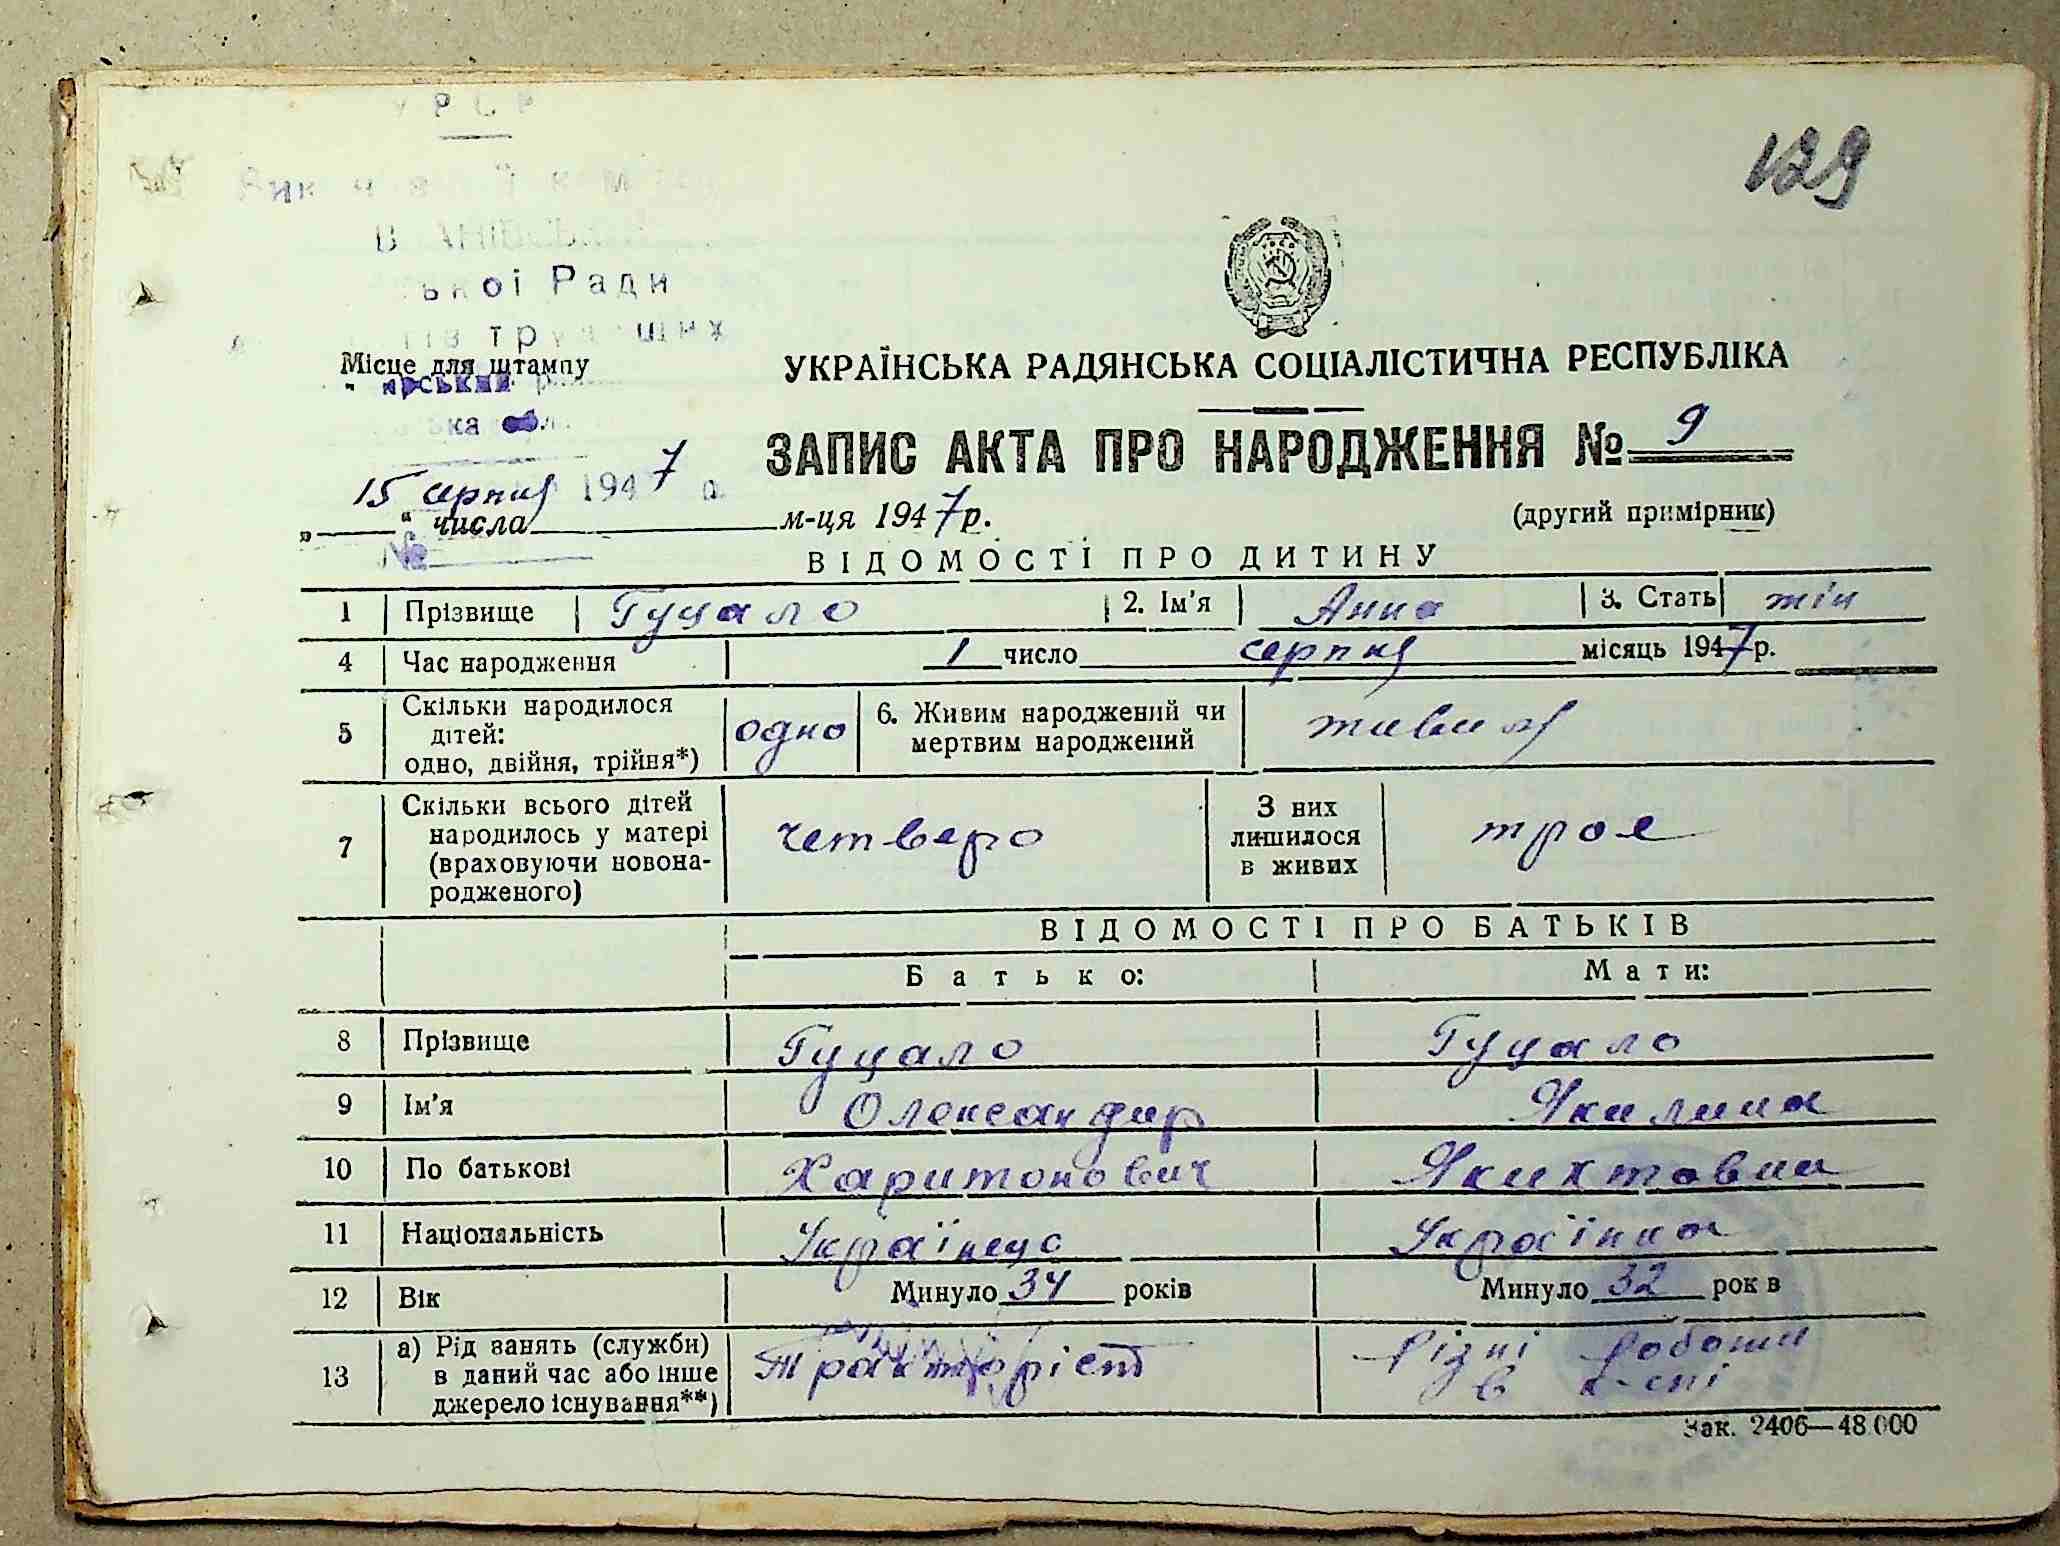 УРСР
129
ької Ради
Місце для штампу
УКРАЇНСЬКА РАДЯНСЬКА СОЦІАЛІСТИЧНА РЕСПУБЛІКА
ЗАПИС АКТА ПРО НАРОДЖЕННЯ № 9
15 серпня 1947 р.
„ “ числа м-ця 1947 р.
(другий примірник)
№
ВІДОМОСТІ ПРО ДИТИНУ
1 Прізвище Гуцало 2. Ім'я Анна 3. Стать жін
4 Час народження 1 число серпня місяць 1947 р.
5 Скільки народилося дітей: одно, двійня, трійня*) одно 6. Живим народжений чи мертвим народжений живим
7 Скільки всього дітей народилось у матері (враховуючи новонародженого) четверо З них лишилося в живих троє
ВІДОМОСТІ ПРО БАТЬКІВ
Батько: Мати:
8 Прізвище Гуцало Гуцало
9 Ім'я Олександир Якилина
10 По батькові Харитонович
11 Національність Українец Українка
12 Вік Минуло 34 років Минуло 32 рок в
13 а) Рід занять (служби) в даний час або інше джерело існування**) Тракторіст Різні роботи в к-спі
Зак. 2406—48.000